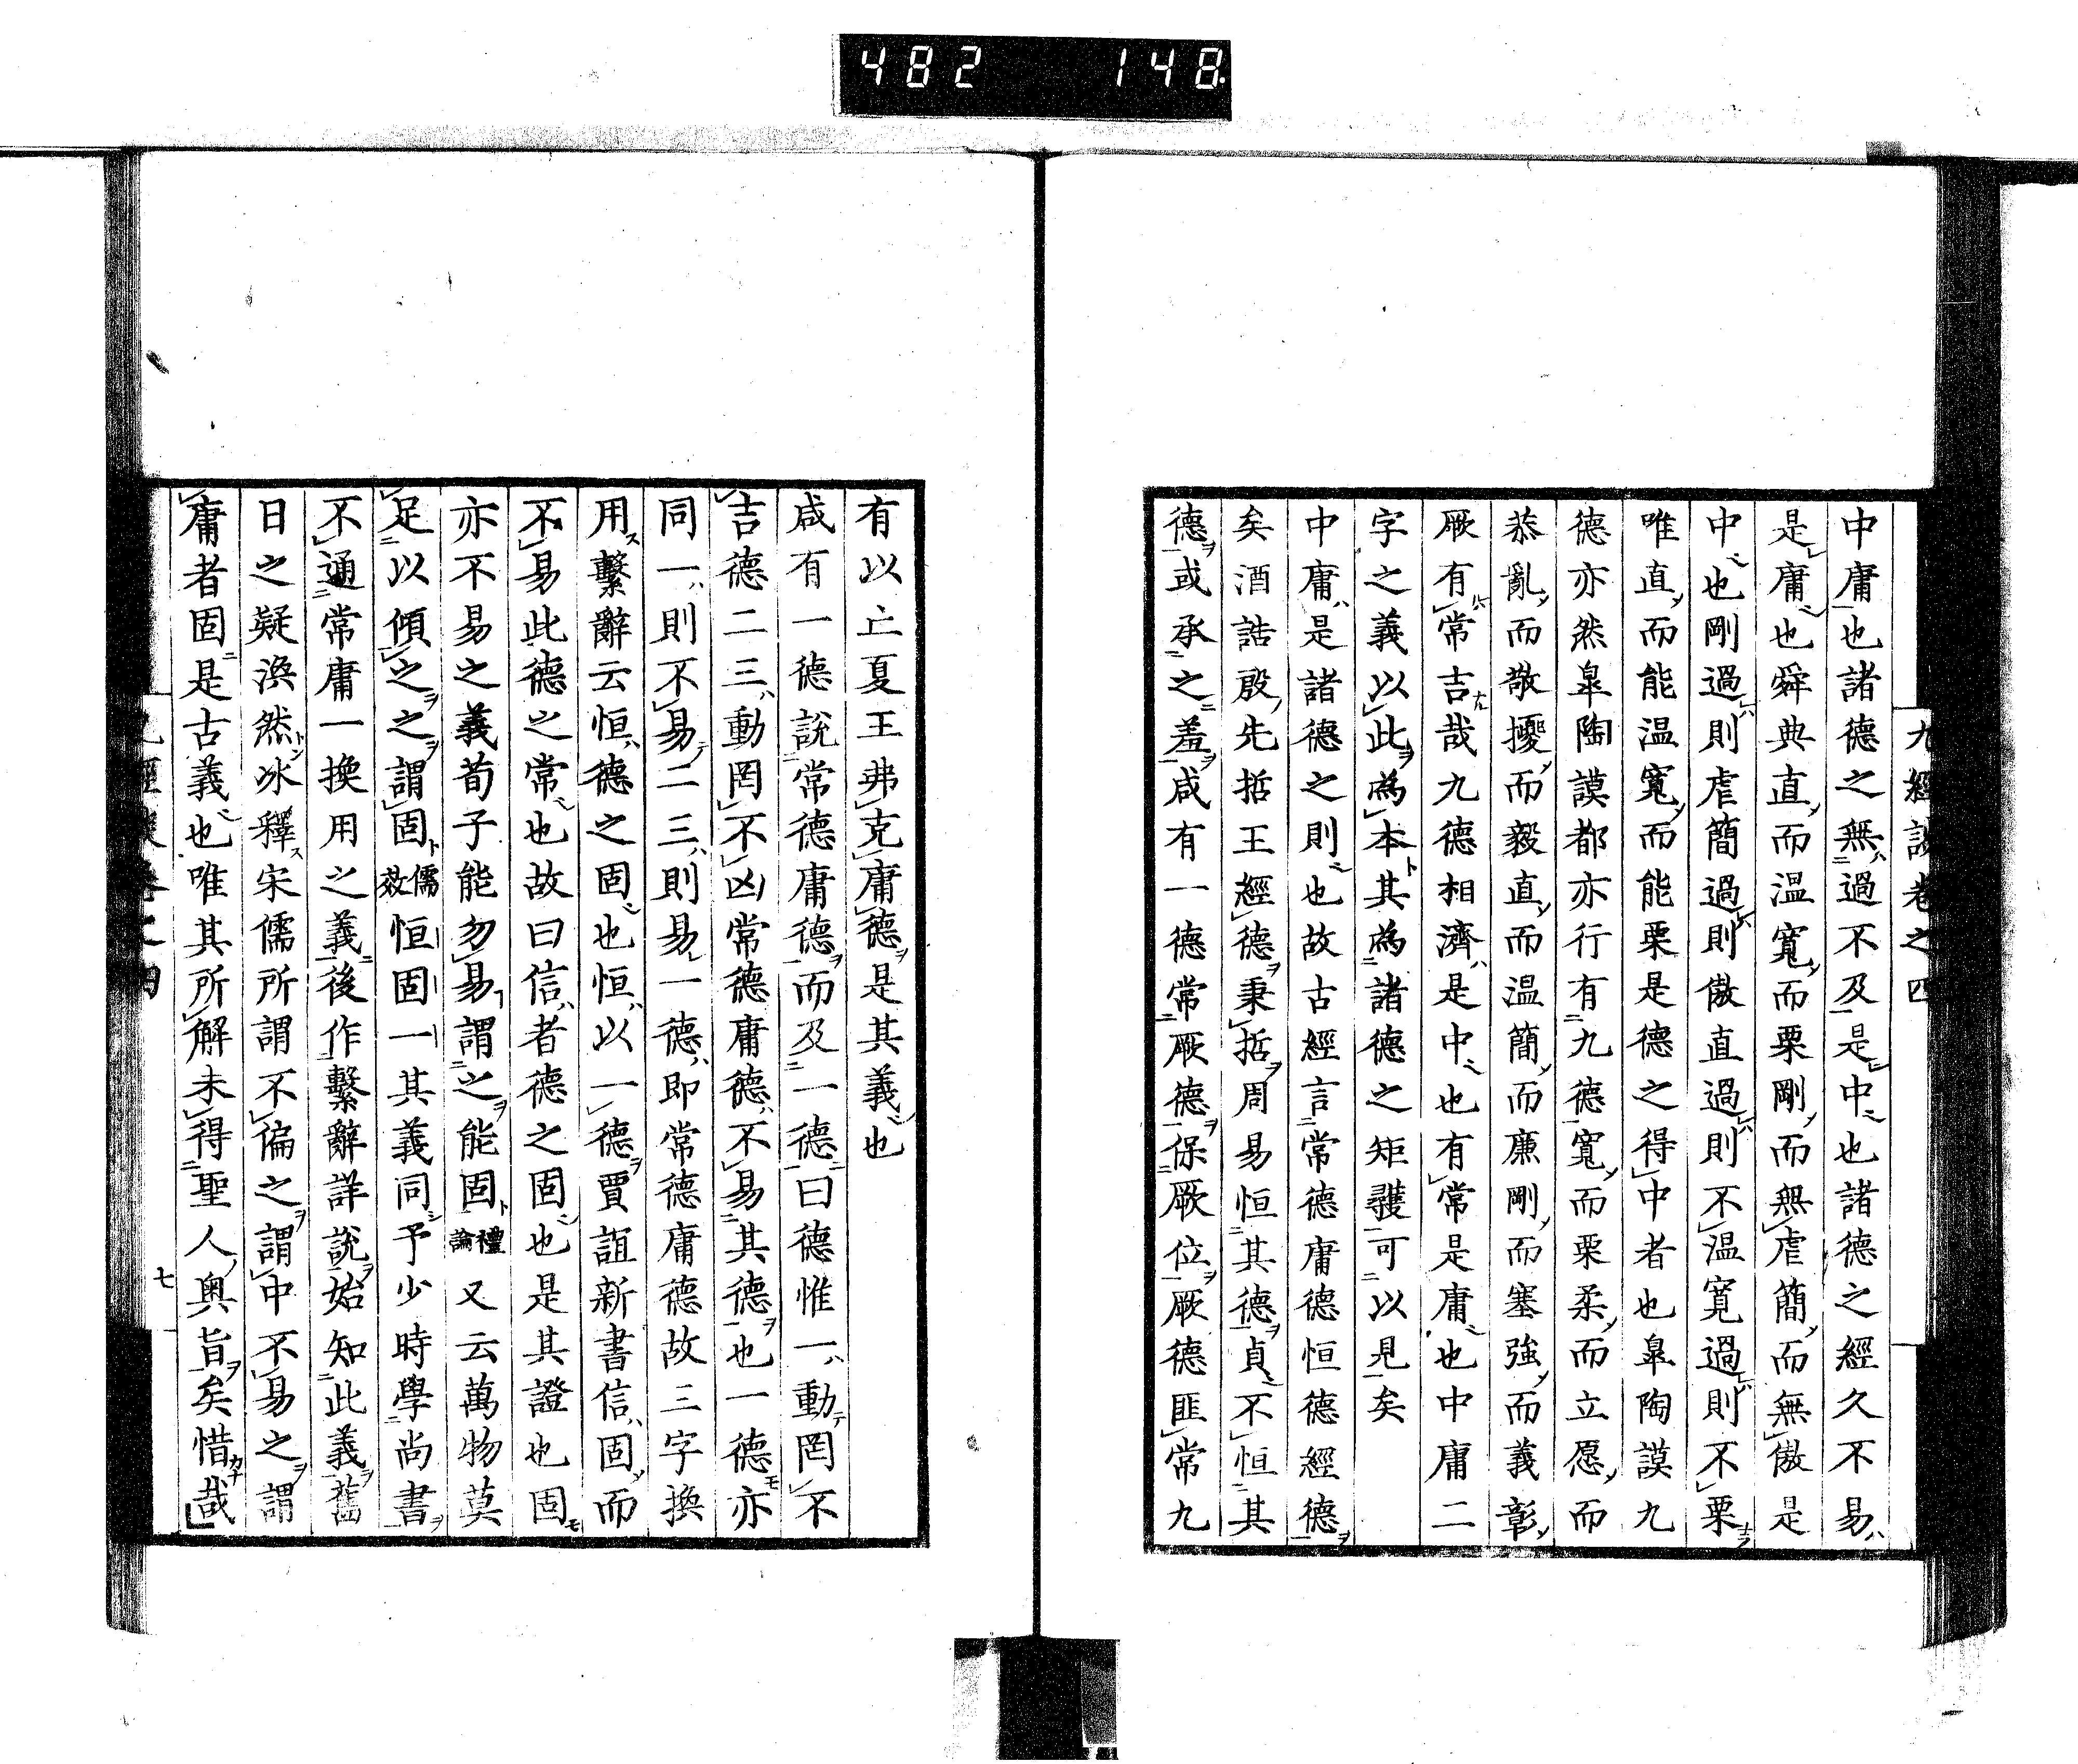 482 148
九經談卷之四
中庸也諸德之無過不及是中也諸德之經久不易
是庸也舜典直而溫寬而栗剛而無虐簡而無傲是
中也剛過則虐簡過則傲直過則不溫寬過則不栗
唯直而能溫寬而能栗是德之得中者也皐陶謨九
德亦然皐陶謨都亦行有九德寬而栗柔而立愿而
恭亂而敬擾而毅直而溫簡而廉剛而塞強而義彰
厥有常吉哉九德相濟是中也有常是庸也中庸二
字之義以此為本其為諸德之矩彠可以見矣
中庸是諸德之則也故古經言常德庸德恒德經德
矣酒誥殷先哲王經德秉哲周易恒其德貞不恒其
德或承之羞咸有一德常厥德保厥位厥德匪常九
有以亡夏王弗克庸德是其義也
咸有一德說常德庸德而及一德曰德惟一動罔不
吉德二三動罔不凶常德庸德不易其德也一德亦
同一則不易二三則易一德即常德庸德故三字換
用繫辭云恒德之固也恒以一德賈誼新書信固而
不易此德之常也故曰信者德之固也是其證也固
亦不易之義荀子能勿易謂之能固禮論又云萬物莫
足以傾之之謂固儒效恒固一其義同予少時學尚書
不通常庸一換用之義後作繫辭詳說始知此義舊
日之疑渙然冰釋宋儒所謂不偏之謂中不易之謂
庸者固是古義也唯其所解未得聖人奧旨矣惜哉
七